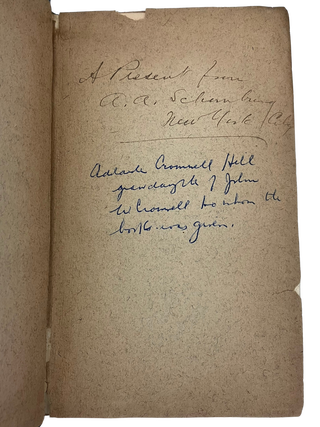 A Present from
A. A. Schomburg
New York City
Adelaide Cromwell Hill
grandaughter of John
W Cromwell to whom the
book was given.